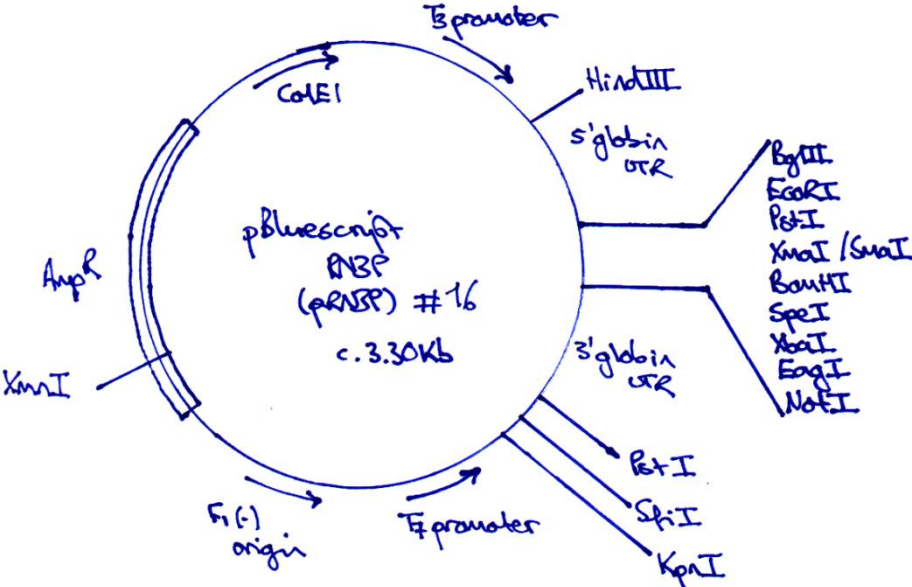 T3 promoter
ColE1
HindIII
5' globin
UTR
BglII
EcoRI
PstI
XmaI / SmaI
BamHI
SpeI
XbaI
EagI
NotI
pBluescript
RN3P
(pRN3P) #16
c. 3.30Kb
AmpR
XmnI
3' globin
UTR
PstI
SfiI
KpnI
T7 promoter
F1 (-)
origin